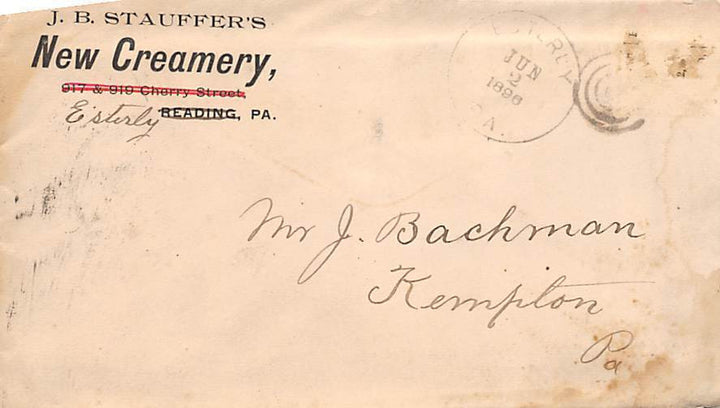 J. B. STAUFFER'S
New Creamery,
917 & 919 Cherry Street,
Esterly READING, PA.
ESTERLY
JUN
2
1896
PA.
Mr J. Bachman
Kempton
Pa